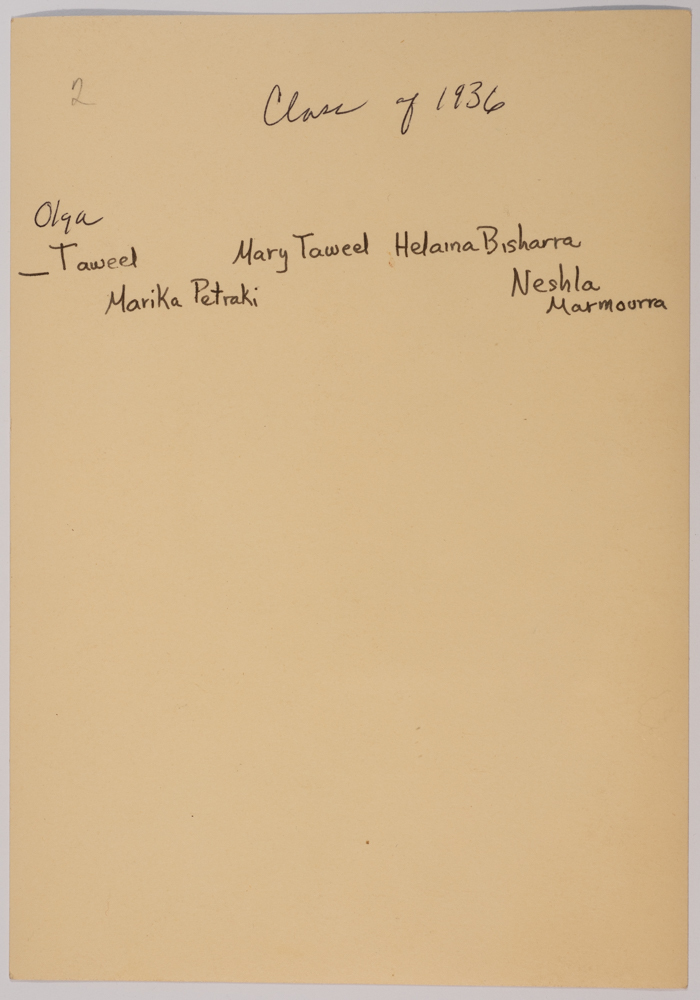 2
Class of 1936
Olga
_Taweel Mary Taweel Helaina Bisharra
Marika Petraki Neshla
Marmourra